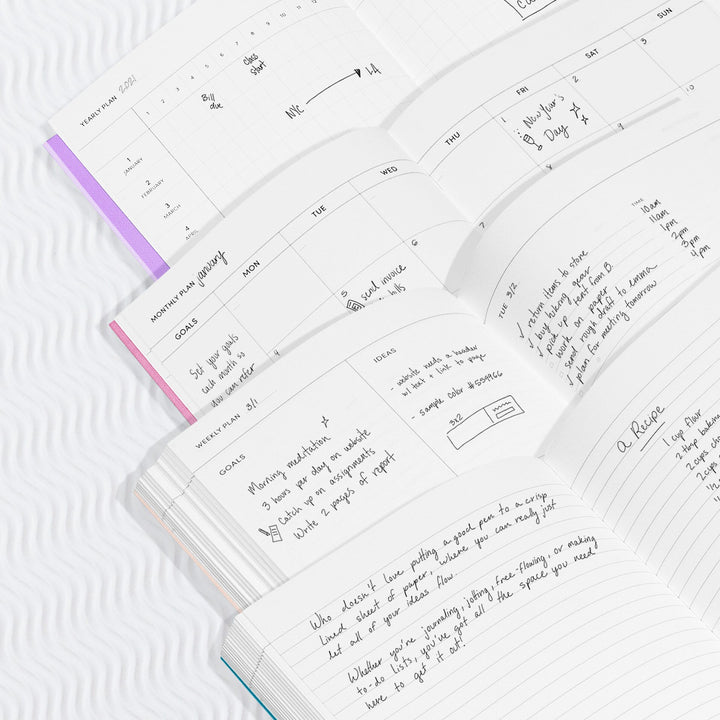 YEARLY PLAN 2021
1 2 3 4 5 6 7 8 9 10 11 12
1
JANUARY
2
FEBRUARY
3
MARCH
4
APRIL
Bill
due
Class
start
NYC
LA
MONTHLY PLAN January
GOALS
Set your goals
each month so
you can refer
MON
TUE
WED
THU
FRI
SAT
SUN
4
5
send invoice
bills
6
7
1
New Year's
Day
2
3
8
9
10
WEEKLY PLAN 3/1
GOALS
Morning meditation
3 hours per day on website
Catch up on assignments
Write 2 pages of report
IDEAS
- website needs a header
w/ text + link to page
- sample color #559966
3x2
TUE 3/2
return items to store
buy hiking gear
pick up tent from B.
work on paper
send rough draft to emma
plan for meeting tomorrow
TIME
10am
11am
1pm
2pm
3pm
4pm
Who doesn't love putting a good pen to a crisp
lined sheet of paper, where you can really just
let all of your ideas flow.
Whether you're journaling, jotting, free-flowing, or making
to-do lists, you've got all the space you need
here to get it out!
a Recipe
1 cup flour
2 tbsp baking
2 cups
2 cups